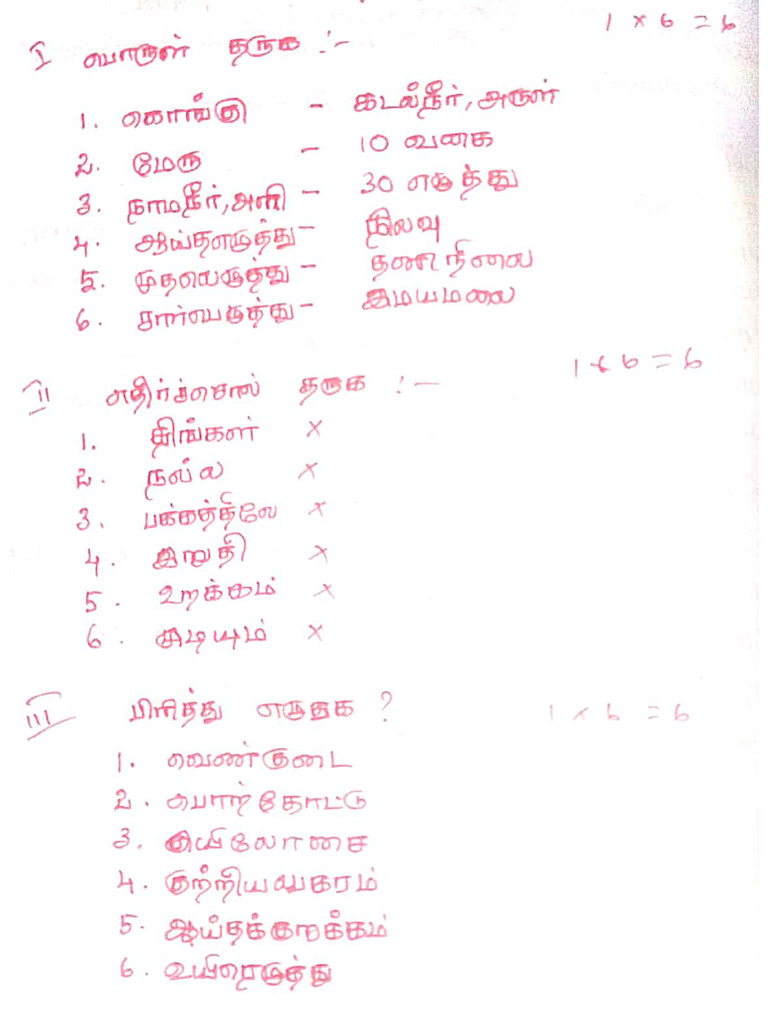 1 x 6 = 6
I பொருள் தருக :-
1. கொங்கு - கடல்நீர், அருள்
2. மேரு - 10 வகை
3. நாமநீர், அளி - 30 எழுத்து
4. ஆய்தஎழுத்து - நிலவு
5. முதலெழுத்து - தனிநிலை
6. சார்பெழுத்து - இமயமலை
II எதிர்ச்சொல் தருக :- 1 x 6 = 6
1. திங்கள் x
2. நல்ல x
3. பக்கத்திலே x
4. இறுதி x
5. உறக்கம் x
6. முடியும் x
III பிரித்து எழுதுக ? 1 x 6 = 6
1. வெண்குடை
2. பொற்கோட்டு
3. குயிலோசை
4. குற்றியலுகரம்
5. ஆய்தக்குறுக்கம்
6. உயிரெழுத்து